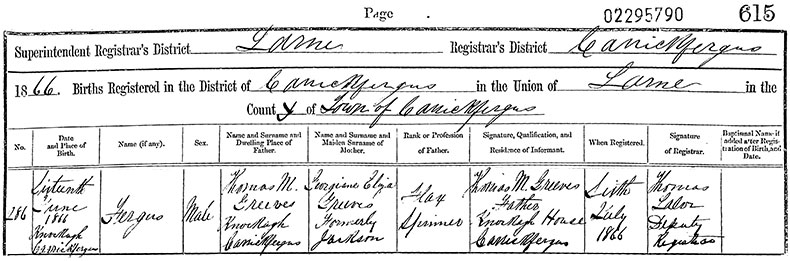 Page 02295790 615
Superintendent Registrar's District Larne Registrar's District Carrickfergus
1866. Births Registered in the District of Carrickfergus in the Union of Larne in the
County of Town of Carrickfergus
No. Date and Place of Birth. Name (if any). Sex. Name and Surname and Dwelling Place of Father. Name and Surname and Maiden Surname of Mother. Rank or Profession of Father. Signature, Qualification, and Residence of Informant. When Registered. Signature of Registrar. Baptismal Name if added after Registration of Birth, and Date.
286 Sixteenth June 1866 Knockagh Carrickfergus Fergus Male Thomas M. Greeves Knockagh Carrickfergus Georgiana Eliza Greeves Formerly Jackson Flax Spinner Thomas M. Greeves Father Knockagh House Carrickfergus Sixth July 1866 Thomas Deputy Registrar